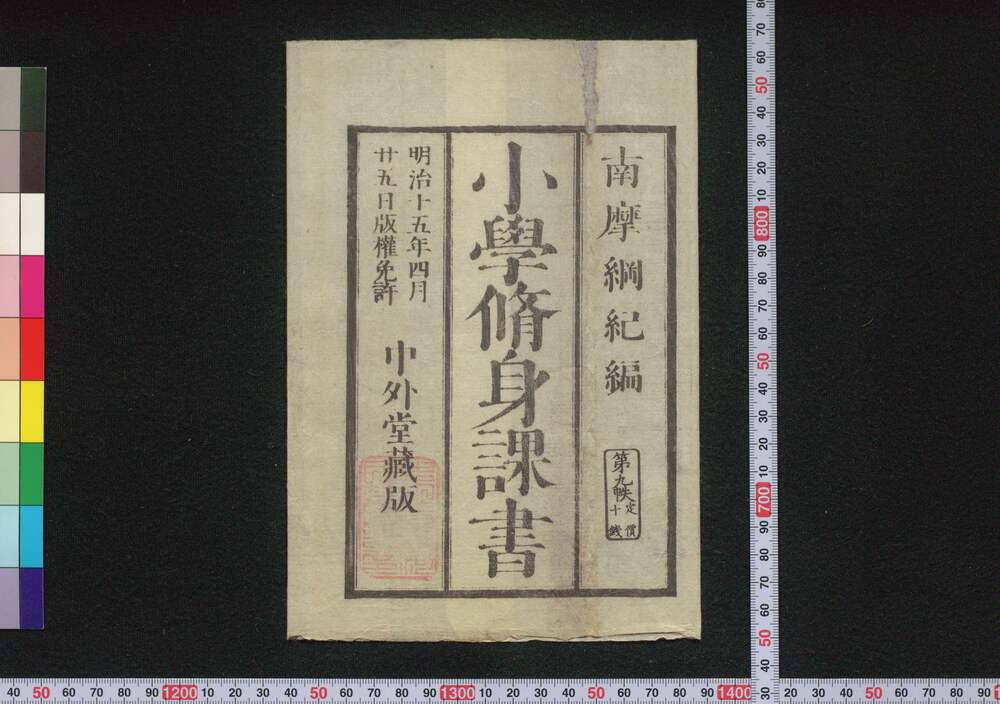 南摩綱紀編
第九帙定價
十錢
小學脩身課書
明治十五年四月
廿五日版權免許
中外堂藏版
80 70 60 50 40 30 20 10 800 90 80 70 60 50 40 30 20 10 700 90 80 70 60 50 40 30
40 50 60 70 80 90 1200 10 20 30 40 50 60 70 80 90 1300 10 20 30 40 50 60 70 80 90 1400 10 20 30 40 50 60 70 80 90